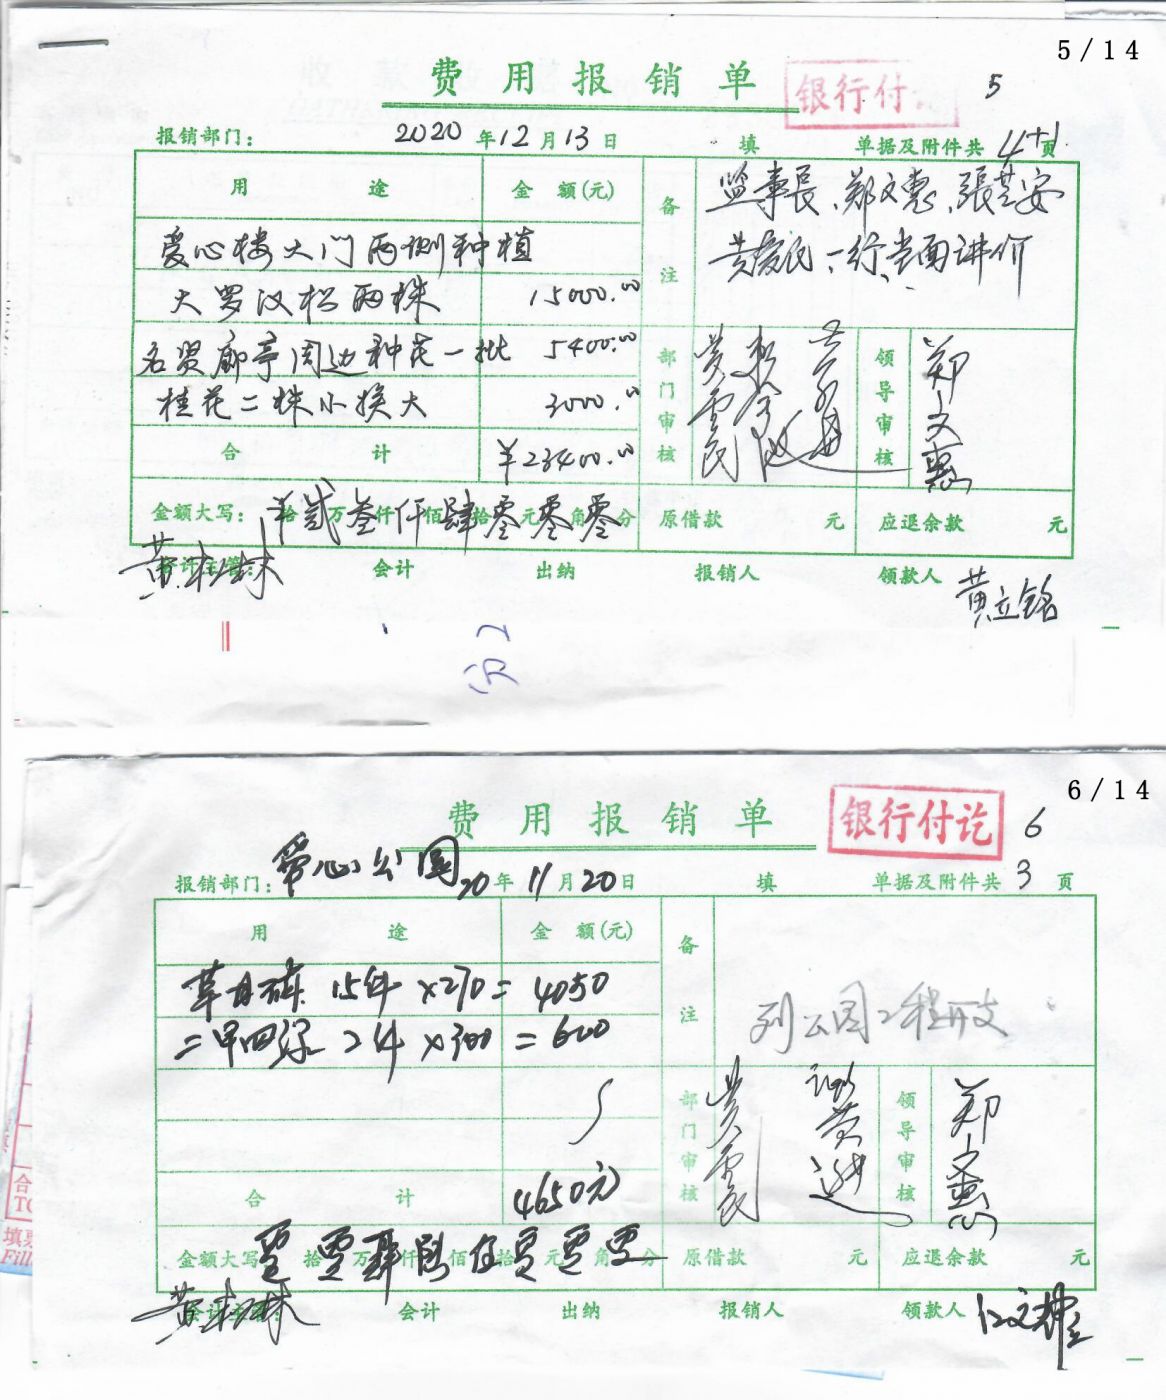 5/14
费用报销单
银行付
5
报销部门: 2020年12月13日 填 单据及附件共4+1页
用途 金额(元) 备注
监事長、郑文惠、張芝安
黄爱民一行当面讲价
爱心楼大门两侧种植
大罗汉松两株 15000.00
名贤廊亭周边种花一批 5400.00
桂花二株小换大 3000.00
部门审核 领导审核 郑文惠
合计 ¥23400.00
金额大写: 拾贰万叁仟肆佰零拾零元零角分 原借款 元 应退余款 元
会计主管: 黄松林 会计 出纳 报销人 领款人 黄立铭
6/14
费用报销单
银行付讫
6
报销部门: 爱心公园 20年11月20日 填 单据及附件共3页
用途 金额(元) 备注
列公园工程开支
15件×270=4050
二甲四 2件×300=600
部门审核 领导审核 郑文惠
合计 4650元
金额大写: 拾万仟佰拾元角分 原借款 元 应退余款 元
会计主管: 黄松林 会计 出纳 报销人 领款人